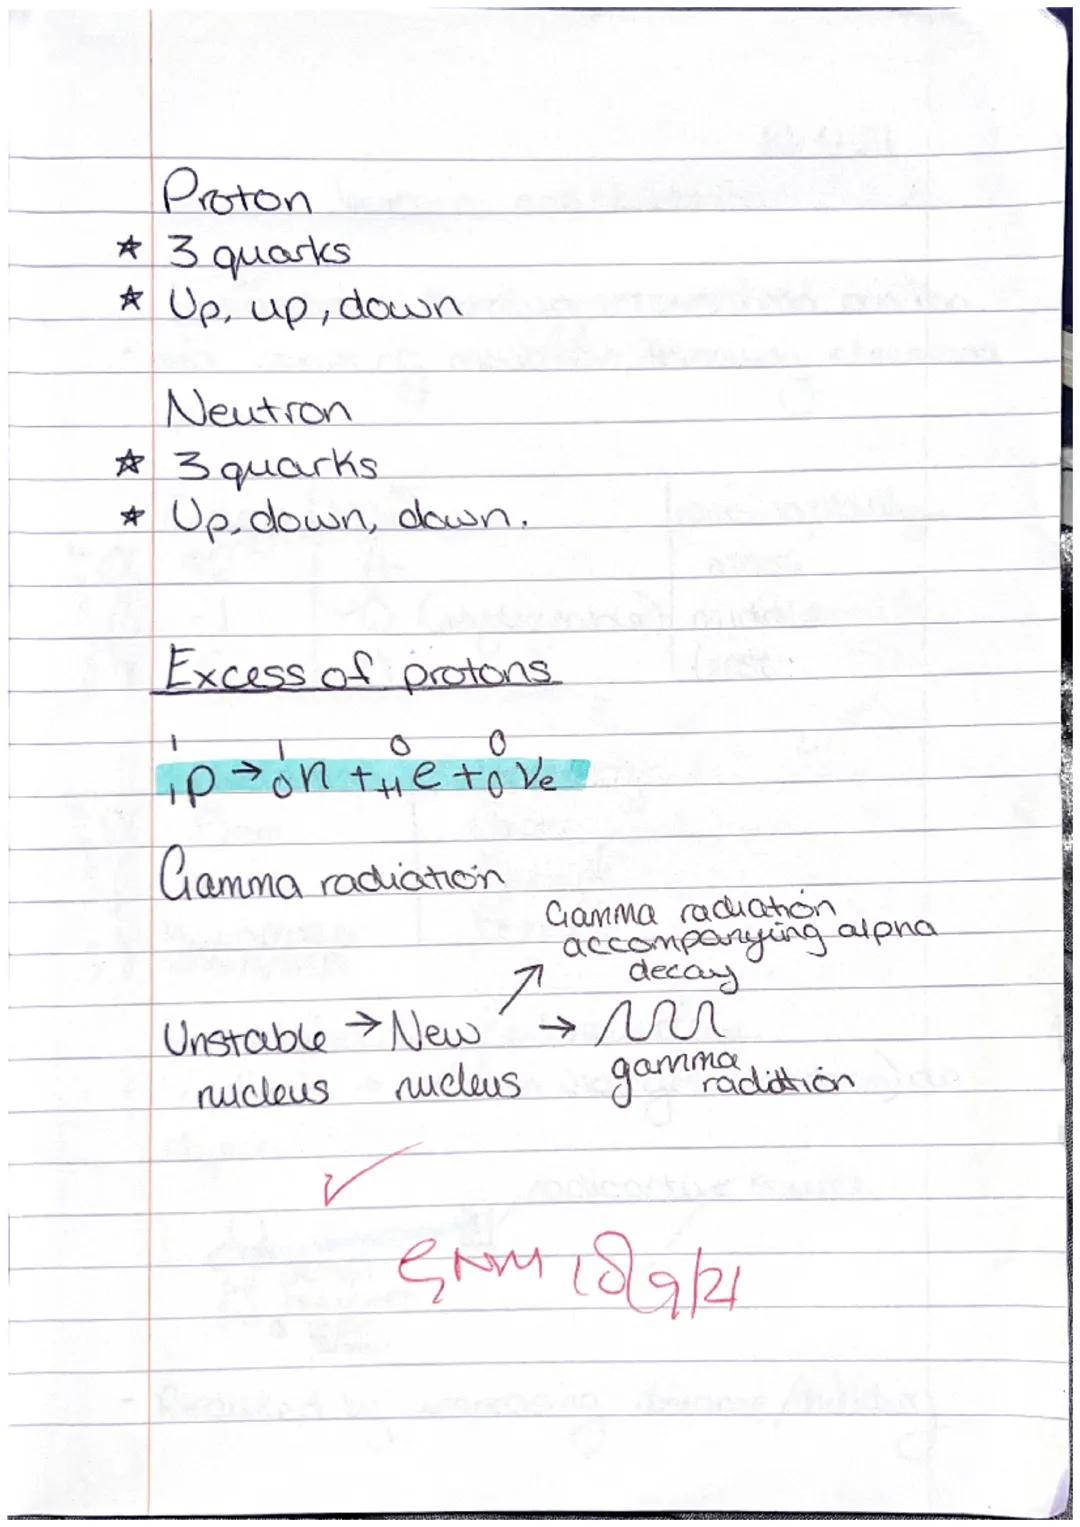 Proton
☆ 3 quarks
☆ Up, up, down
Neutron
☆ 3 quarks
☆ Up, down, down.
Excess of protons
¹₁p → ¹₀n + ⁰₊₁e + ⁰₀νe
Gamma radiation
Gamma radiation
accompanying alpha
decay
Unstable → New →
nucleus nucleus gamma
radiation